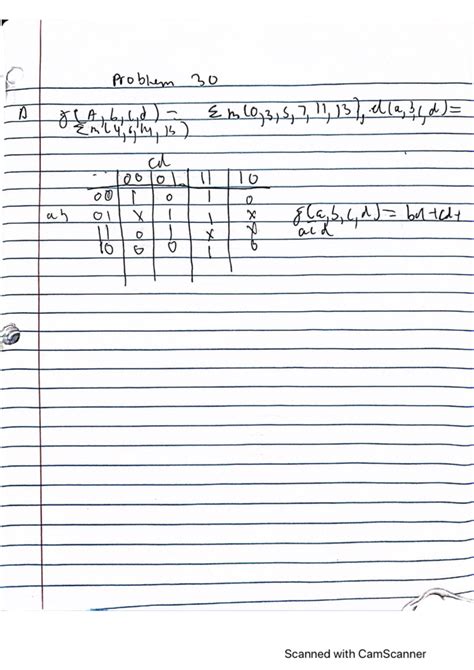 Problem 30
A f(A,b,c,d) = Σm(0,3,5,7,11,13), d(a,b,c,d)=
Σm(4,6,14,15)
cd
00 01 11 10
00 1 0 1 0
ab 01 X 1 1 X f(a,b,c,d) = bd+cd+
11 0 1 X X acd
10 0 0 1 0
Scanned with CamScanner